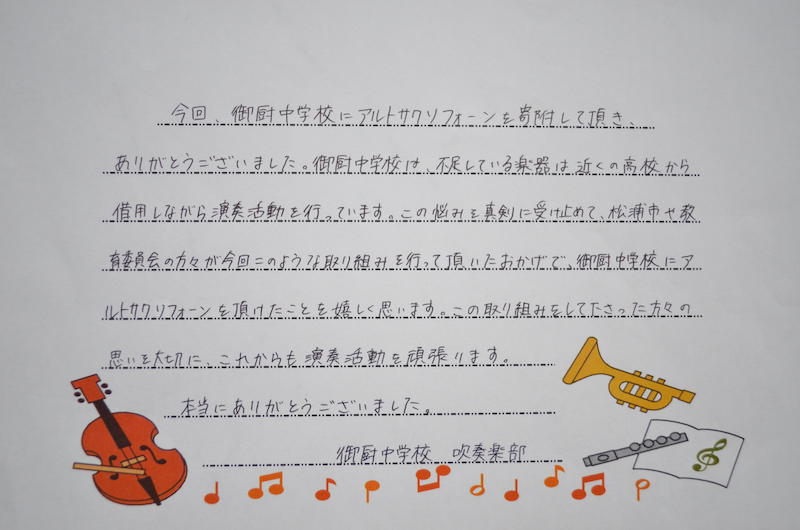 今回、御厨中学校にアルトサクソフォーンを寄附して頂き、
ありがとうございました。御厨中学校は、不足している楽器は近くの高校から
借用しながら演奏活動を行っています。この悩みを真剣に受け止めて、松浦市や教
育委員会の方々が今回このような取り組みを行って頂いたおかげで、御厨中学校にア
ルトサクソフォーンを頂けたことを嬉しく思います。この取り組みをして下さった方々の
思いを大切に、これからも演奏活動を頑張ります。
本当にありがとうございました。
御厨中学校 吹奏楽部